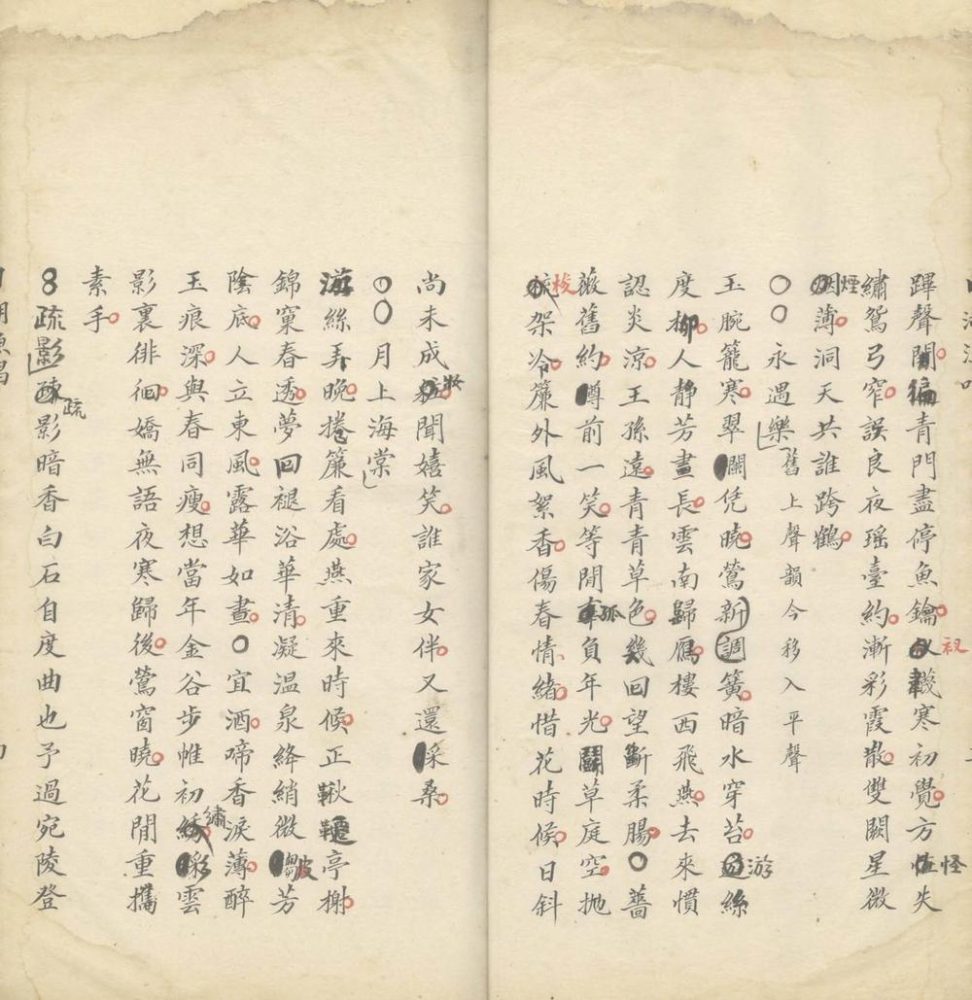 蹕聲聞徧青門盡停魚鑰衩襪寒初覺方怪失
繡鴛弓窄誤良夜瑤臺約漸彩霞散雙闕星微
煙薄洞天共誰跨鶴
〇〇永遇樂舊上聲韻今移入平聲
玉腕籠寒翠闌凭曉鶯新調簧暗水穿苔游絲
度柳人靜芳晝長雲南歸鴈樓西飛燕去來慣
認炎涼王孫遠青青草色幾回望斷柔腸〇薔
薇舊約罇前一笑等閒孤負年光鬭草庭空抛
梭架冷簾外風絮香傷春情緒惜花時候日斜
尚未成妝聞嬉笑誰家女伴又還採桑
〇〇月上海棠
游絲弄晚捲簾看處燕重來時候正鞦韆亭榭
錦窠春透夢回褪浴華清凝温泉絳綃微皺芳
陰底人立東風露華如晝〇宜酒啼香淚薄醉
玉痕深與春同瘦想當年金谷步帷初繡彩雲
影裏徘徊嬌無語夜寒歸後鶯窗曉花閒重攜
素手
8疏影疏影暗香白石自度曲也予過宛陵登